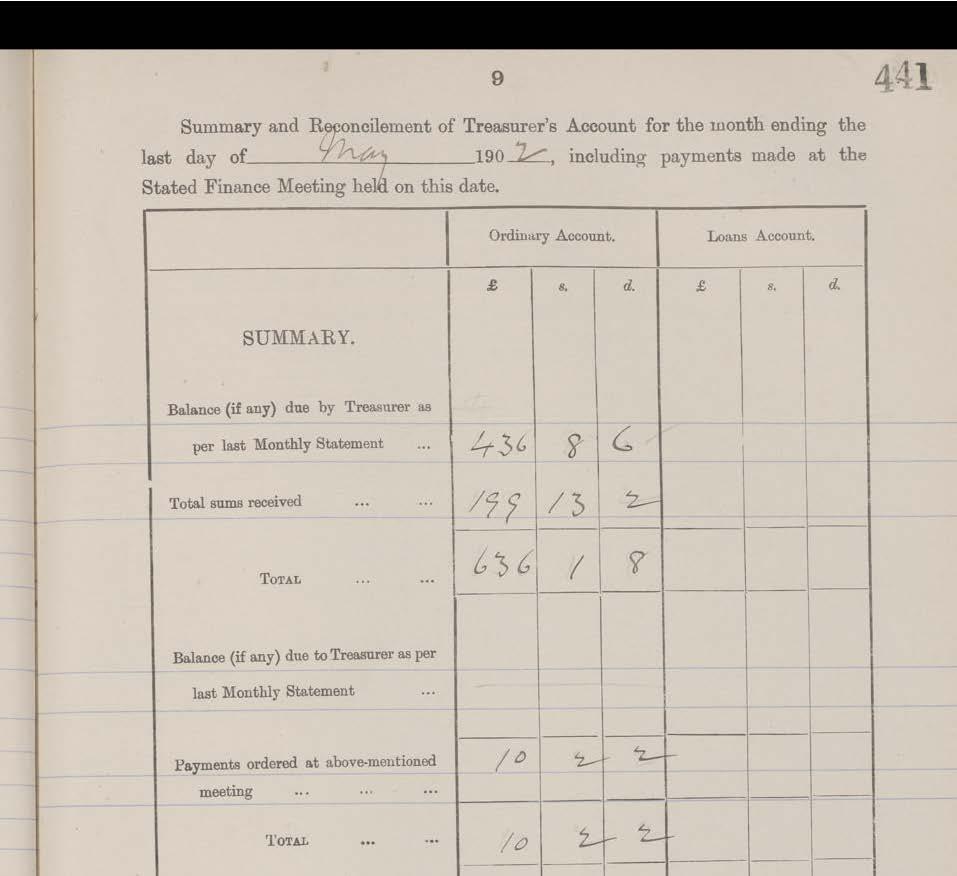 9
441
Summary and Reconcilement of Treasurer's Account for the month ending the
last day of May 1902, including payments made at the
Stated Finance Meeting held on this date.
Ordinary Account. Loans Account.
£ s. d. £ s. d.
SUMMARY.
Balance (if any) due by Treasurer as
per last Monthly Statement ... 436 8 6
Total sums received ... ... 199 13 2
TOTAL ... ... 636 1 8
Balance (if any) due to Treasurer as per
last Monthly Statement ...
Payments ordered at above-mentioned 10 2 2
meeting ... ... ...
TOTAL ... ... 10 2 2